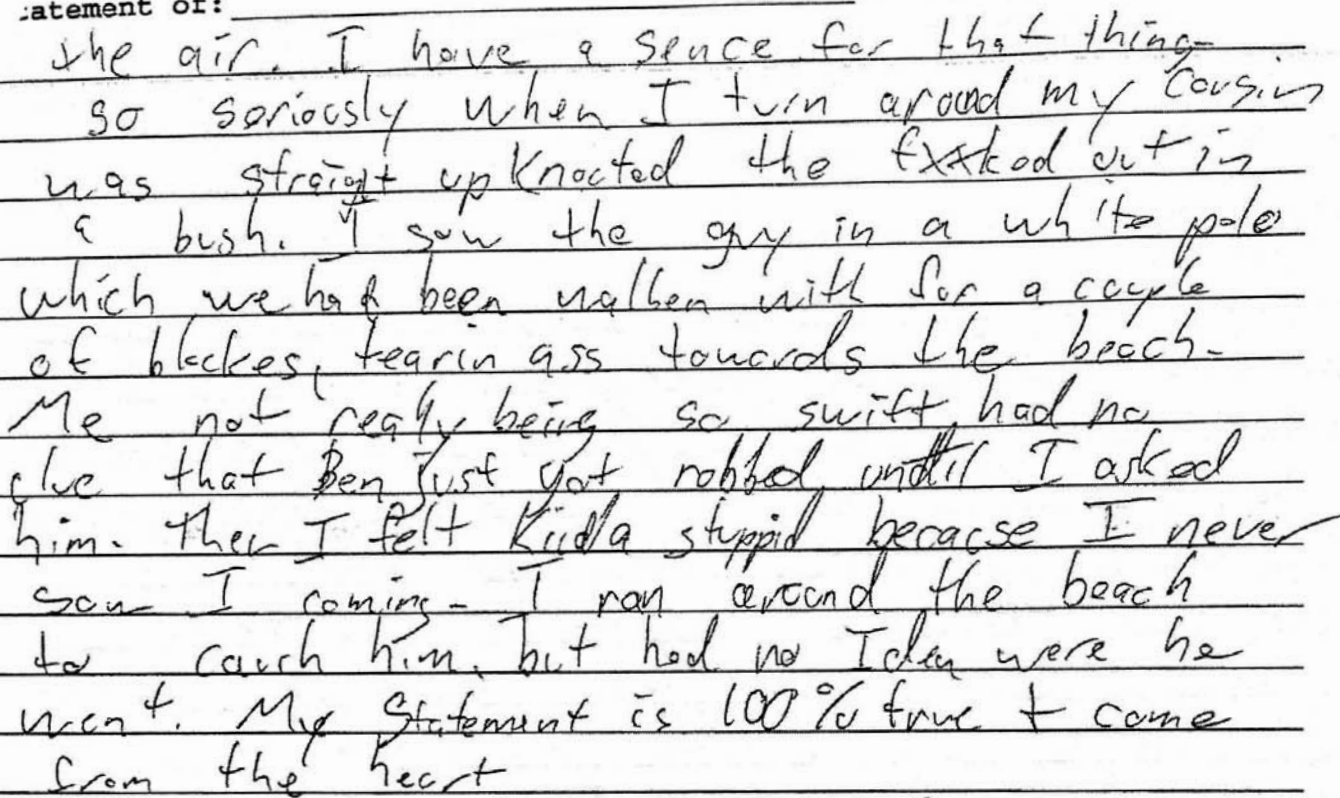 atement of:
the air. I have a sence for that thing
so soriously when I turn around my Cousin
was straight up Knocted the fxxked out in
a bush. I saw the guy in a white polo
which we had been walken with for a couple
of blckes, tearin ass towards the beach.
Me not really being so swift, had no
clue that Ben just got robbed, until I asked
him. Then I felt Kiidla stuppid becacse I never
saw I coming. I ran around the beach
to cauch him, but had no Idea were he
went. My Statement is 100% true + came
from the heart